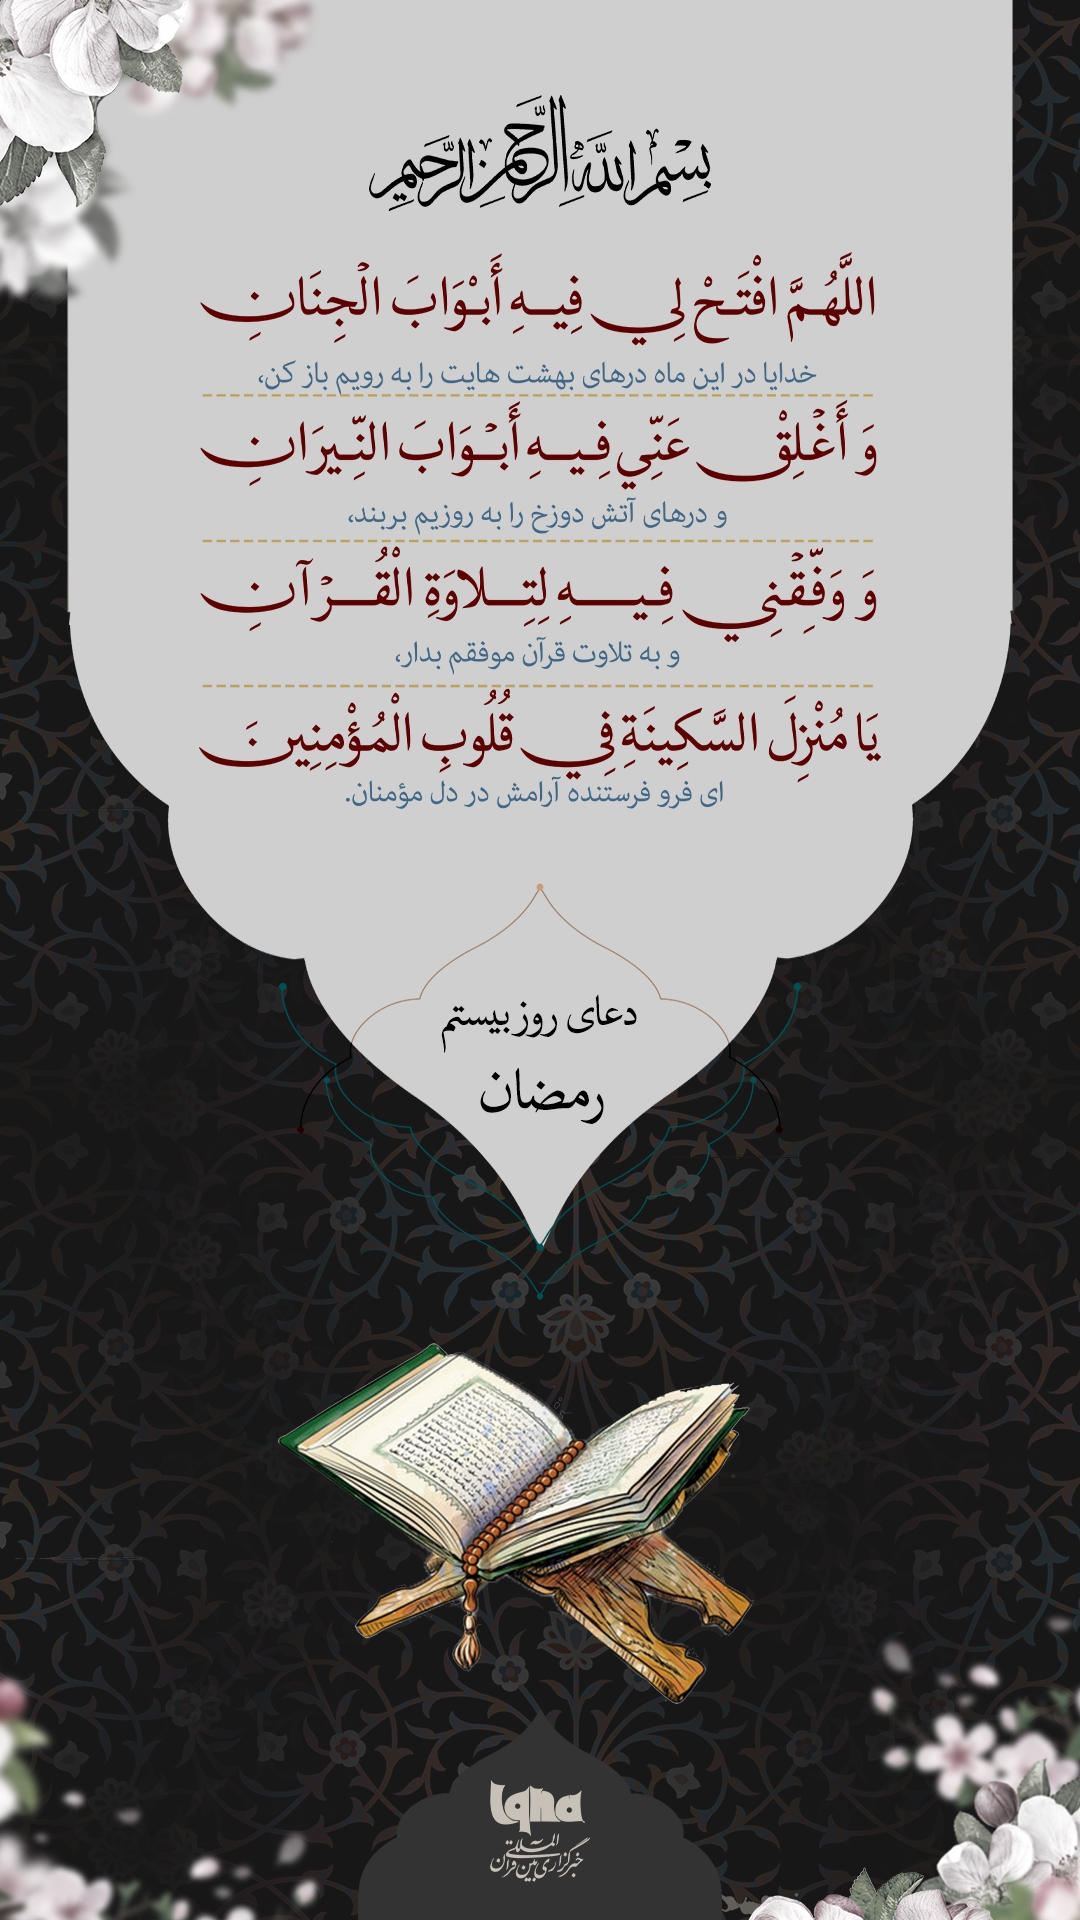 بِسْمِ اللَّهِ الرَّحْمَٰنِ الرَّحِيمِ
اللَّهُمَّ افْتَحْ لِي فِيهِ أَبْوَابَ الْجِنَانِ
خدایا در این ماه درهای بهشت هایت را به رویم باز کن،
وَ أَغْلِقْ عَنِّي فِيهِ أَبْوَابَ النِّيرَانِ
و درهای آتش دوزخ را به روزیم بربند،
وَ وَفِّقْنِي فِيهِ لِتِلاوَةِ الْقُرْآنِ
و به تلاوت قرآن موفقم بدار،
يَا مُنْزِلَ السَّكِينَةِ فِي قُلُوبِ الْمُؤْمِنِينَ
ای فرو فرستنده آرامش در دل مؤمنان.
دعای روز بیستم
رمضان
Iqna
خبرگزاری بین المللی قرآن